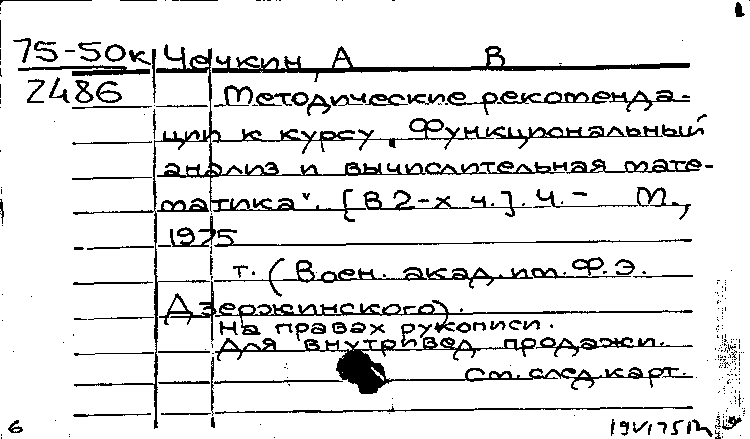 75-50к Чечкин, А В
2486 Методические рекоменда-
ции к курсу „Функциональный
анализ и вычислительная мате-
матика“. [В 2-х ч.]. Ч. - М.,
1975
т. (Воен. акад. им. Ф.Э.
Дзержинского).
На правах рукописи.
Для внутривед. продажи.
См. след. карт.
6